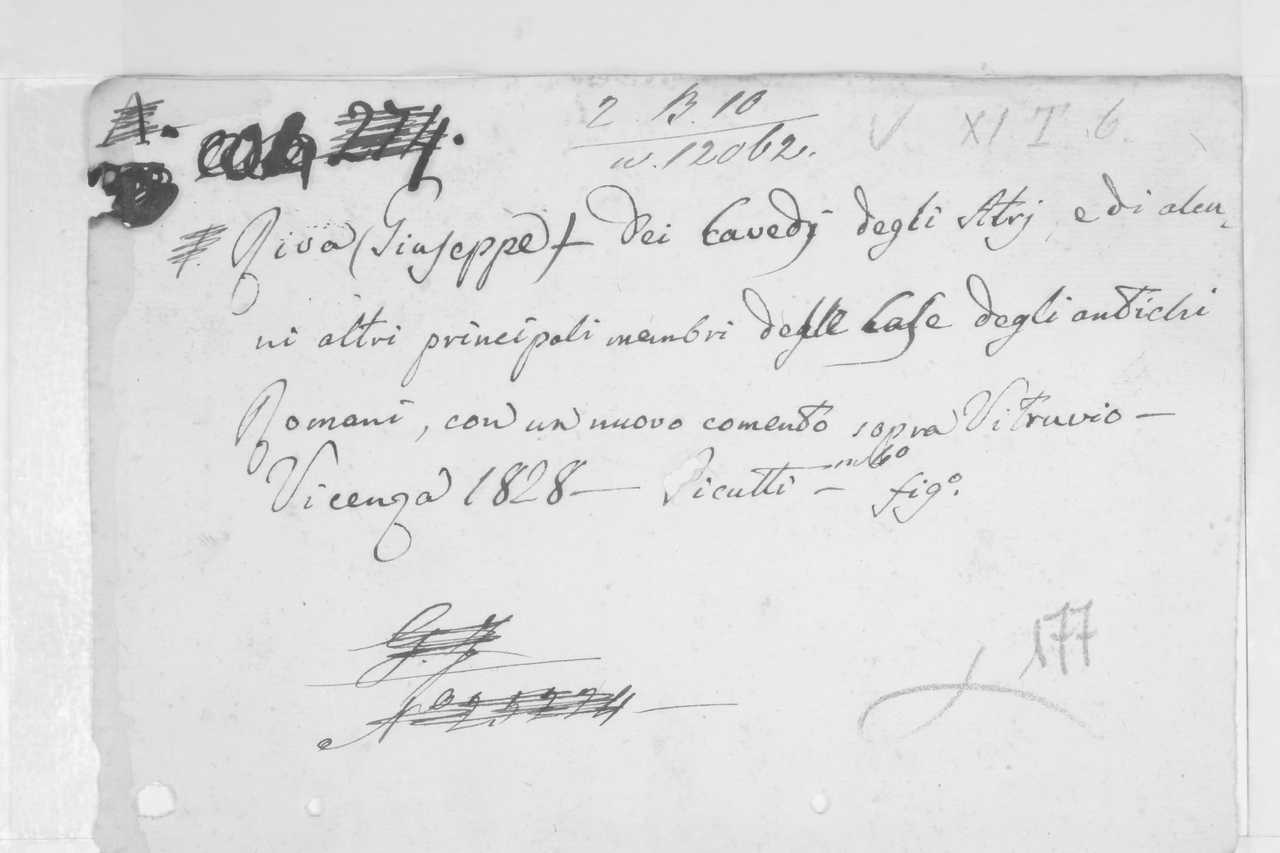 A. 274.
2. B. 10
n. 12062.
V XI I .6.
Riva (Giuseppe) + Dei Cavedj degli Atrj, e di alcu-
ni altri principali membri delle Case degli antichi
Romani, con un nuovo comento sopra Vitruvio —
Vicenza 1828 — Picutti — in 6º
figº.
177
Nº 25274